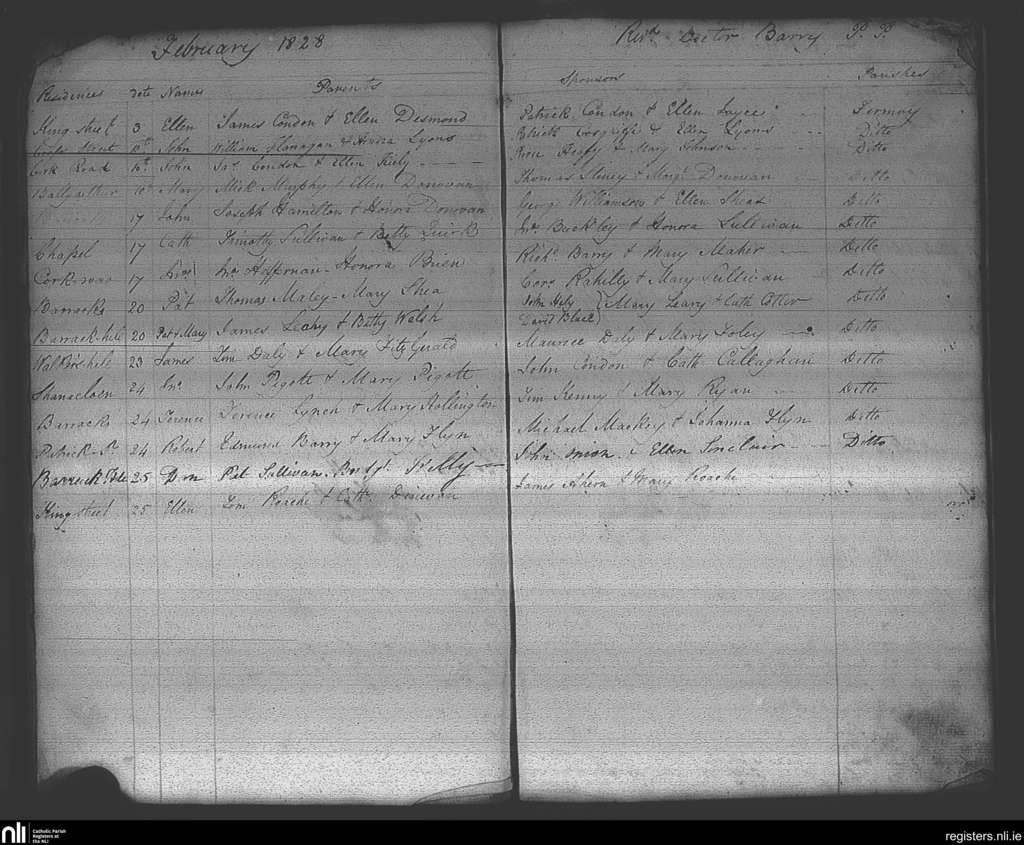 February 1828
Revd Doctor Barry P. P.
Residences date Names Parents Sponsors Parishes
King street 3 Ellen James Condon & Ellen Desmond Patrick Condon & Ellen Joyce Fermoy
Street 10th John William Flanagan & Honora Lyons & Ellen Lyons Ditto
Cork Road 10th John Jas. Condon & Ellen Kiely & Mary Johnson Ditto
10th Mary Mick Murphy & Ellen Donovan Thomas Sliney & Margt Donovan Ditto
17 John Joseph Hamilton & Honora Donovan George Williamson & Ellen Sheas Ditto
Chapel 17 Cath Timothy Sullivan & Betty Quirk Jno. Buckley & Honora Sullivan Ditto
Cork road 17 Jno. Heffernan - Honora Brien Richd. Barry & Mary Maher Ditto
Barracks 20 Pat Thomas Maley - Mary Shea Corns Rahelly & Mary Sullivan Ditto
Barrack hill 20 Pat & Mary James Leahy & Betty Welsh John Hely David Black Mary Leary & Cath Cotter Ditto
23 James Tim Daly & Mary FitzGerald Maurice Daly & Mary Foley Ditto
24 Jno. John Pigott & Mary Pigott John Condon & Cath Callaghan Ditto
Barracks 24 Terence Terence Lynch & Mary Hollington Tim Kenny & Mary Ryan Ditto
Patrick St 24 Robert Edmund Barry & Mary Flyn Michael Mackey & Johanna Flyn Ditto
Barrack 25 Pat Sullivan & Ellen Sinclair Ditto
King street 25 Ellen Tom Roache & Cath Donovan James Ahern & Mary Roache
nli
Catholic Parish
Registers at
the NLI
registers.nli.ie